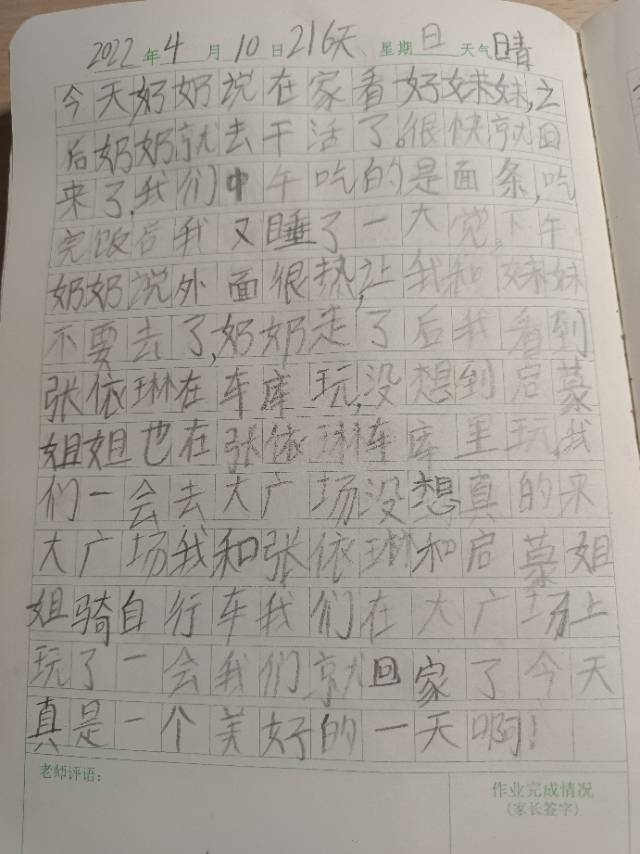 2022年4月10日216天 星期日天气晴
今天,奶奶说在家看好妹妹,之
后奶奶就去干活了。很快就回
来了,我们中午吃的是面条,吃
完饭后我又睡了一大觉。下午
奶奶说外面很热,让我和妹妹
不要去了,奶奶走了后我看到
张依琳在车库玩,没想到启慕
姐姐也在张依琳车库里玩,我
们一会去大广场没想真的来
大广场我和张依琳和启慕姐
姐骑自行车我们在大广场上
玩了一会我们就回家了今天
真是一个美好的一天啊!
老师评语:
作业完成情况
(家长签字)